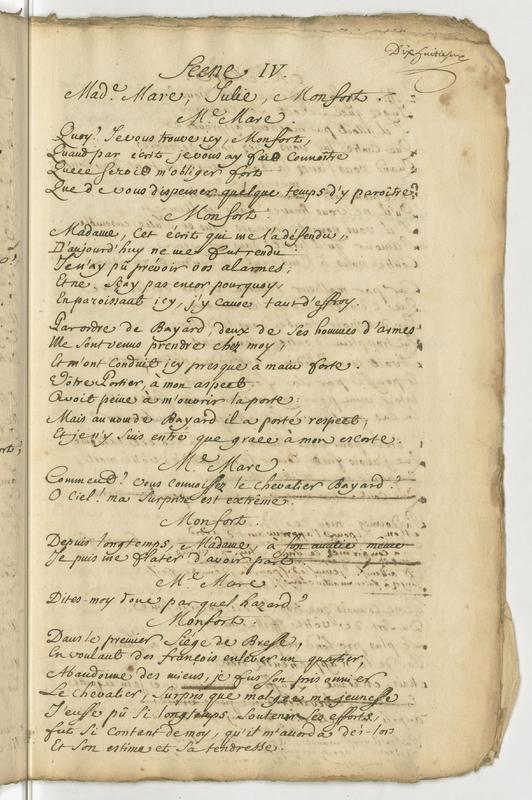 Dixhuitieme
Scene IV.
Made. Mare, Julie, Monfort
Me. Mare.
Quoy! Je vous trouve icy, Monfort,
Quand par écrit je vous ay faid connoître
Que ce seroid m'obliger fort
Que de vous dispenser quelque temps d'y paroître.
Monfort.
Madame, Cet écrit qui me l'a défendu,
D'aujourd'huy ne me fut rendu:
Je n'ay pû prevoir vos alarmes;
Et ne Sçay pas encor pourquoy,
En paroissant icy, j'y cause tant d'effroy.
Par ordre de Bayard, deux de ses hommes d'armes
Me Sont venus prendre chez moy,
Et m'ont Conduit icy presque à main forte.
Votre Portier, à mon aspect
Avoit peine à m'ouvrir la porte:
Mais au nom de Bayard il a porté respect,
Et je n'y Suis entré que grace à mon escorte.
Me. Mare
Commend? vous connoissez le Chevalier Bayard?
O Ciel! ma Surprise est extrême.
Monfort.
Depuis longtemps, Madame, à son amitié meme
Je puis me flater d'avoir part
Me. Mare
Dites-moy donc par quel hazard?
Monfort.
Dans le premier Siége de Bresse,
En voulant des françois enlever un quartier,
Abandonné des miens, je fus son prisonnier
Le Chevalier, Surpris que malgré ma jeunesse
J'eusse pû Si longtemps Soutenir Ses efforts,
fut Si Content de moy, qu'il m'acorda dès-lors
Et Son estime et Sa tendresse.